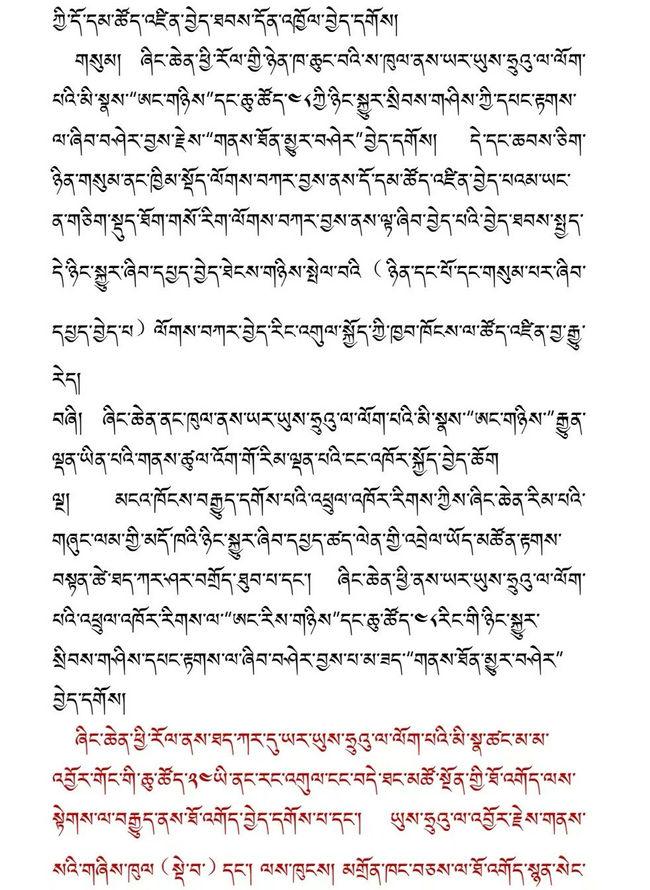 ཀྱི་དོ་དམ་ཚོད་འཛིན་བྱེད་ཐབས་དོན་འཁྱོལ་བྱེད་དགོས།
གསུམ། ཞིང་ཆེན་ཕྱི་རོལ་གྱི་ཉེན་ཁ་ཆུང་བའི་ས་ཁུལ་ནས་ཡར་ཡུས་ཧྲུའུ་ལ་ལོག་
པའི་མི་སྣས་“ཨང་གཉིས”དང་ཆུ་ཚོད་༤༨ཀྱི་ཉིང་སྐྱུར་སྲིབས་གཤིས་ཀྱི་དཔང་རྟགས་
ལ་ཞིབ་བཤེར་བྱས་རྗེས་“གནས་ཐོན་མྱུར་བཤེར”བྱེད་དགོས། དེ་དང་ཆབས་ཅིག་
ཉིན་གསུམ་ནང་ཁྱིམ་སྡོད་ལོགས་བཀར་བྱས་ནས་དོ་དམ་ཚོད་འཛིན་བྱེད་པའམ་ཡང་
ན་གཅིག་སྡུད་ཐོག་གསོ་རིག་ལོགས་བཀར་བྱས་ནས་ལྟ་ཞིབ་བྱེད་པའི་བྱེད་ཐབས་སྤྱད་
དེ་ཉིང་སྐྱུར་ཞིབ་དཔྱད་བྱེད་ཐེངས་གཉིས་སྤེལ་བའི（ཉིན་དང་པོ་དང་གསུམ་པར་ཞིབ་
དཔྱད་བྱེད་པ）ལོགས་བཀར་བྱེད་རིང་འགུལ་སྐྱོད་ཀྱི་ཁྱབ་ཁོངས་ལ་ཚོད་འཛིན་བྱ་རྒྱུ་
རེད།
བཞི། ཞིང་ཆེན་ནང་ཁུལ་ནས་ཡར་ཡུས་ཧྲུའུ་ལ་ལོག་པའི་མི་སྣས་“ཨང་གཉིས་”རྒྱུན་
ལྡན་ཡིན་པའི་གནས་ཚུལ་འོག་གོ་རིམ་ལྡན་པའི་ངང་འཁོར་སྐྱོད་བྱེད་ཆོག
ལྔ། མངའ་ཁོངས་བརྒྱུད་དགོས་པའི་འཕྲུལ་འཁོར་རིགས་ཀྱིས་ཞིང་ཆེན་རིམ་པའི་
གཞུང་ལམ་གྱི་མདོ་ཁའི་ཉིང་སྐྱུར་ཞིབ་དཔྱད་ཚད་ལེན་གྱི་འབྲེལ་ཡོད་མཚོན་རྟགས་
བསྟན་ཚེ་ཐད་ཀར་ཤར་བགྲོད་ཐུབ་པ་དང་། ཞིང་ཆེན་ཕྱི་ནས་ཡར་ཡུས་ཧྲུའུ་ལ་ལོག་
པའི་འཕྲུལ་འཁོར་རིགས་ལ་“ཨང་རིས་གཉིས”དང་ཆུ་ཚོད་༤༨རིང་གི་ཉིང་སྐྱུར་
སྲིབས་གཤིས་དཔང་རྟགས་ལ་ཞིབ་བཤེར་བྱས་པ་མ་ཟད་“གནས་ཐོན་མྱུར་བཤེར”
བྱེད་དགོས།
ཞིང་ཆེན་ཕྱི་རོལ་ནས་ཐད་ཀར་དུ་ཡར་ཡུས་ཧྲུའུ་ལ་ལོག་པའི་མི་སྣ་ཚང་མ་མ་
འབྱོར་གོང་གི་ཆུ་ཚོད་༢༤ཡི་ནང་རང་འགུལ་ངང་བདེ་ཐང་མཚོ་སྔོན་གྱི་ཐོ་འགོད་ལས་
སྟེགས་ལ་བརྒྱུད་ནས་ཐོ་འགོད་བྱེད་དགོས་པ་དང་། ཡུས་ཧྲུའུ་ལ་འབྱོར་རྗེས་གནས་
སའི་གཞིས་ཁུལ（སྡེ་བ་）དང་། ལས་ཁུངས། མགྲོན་ཁང་བཅས་ལ་ཐོ་འགོད་སྙན་སེང་